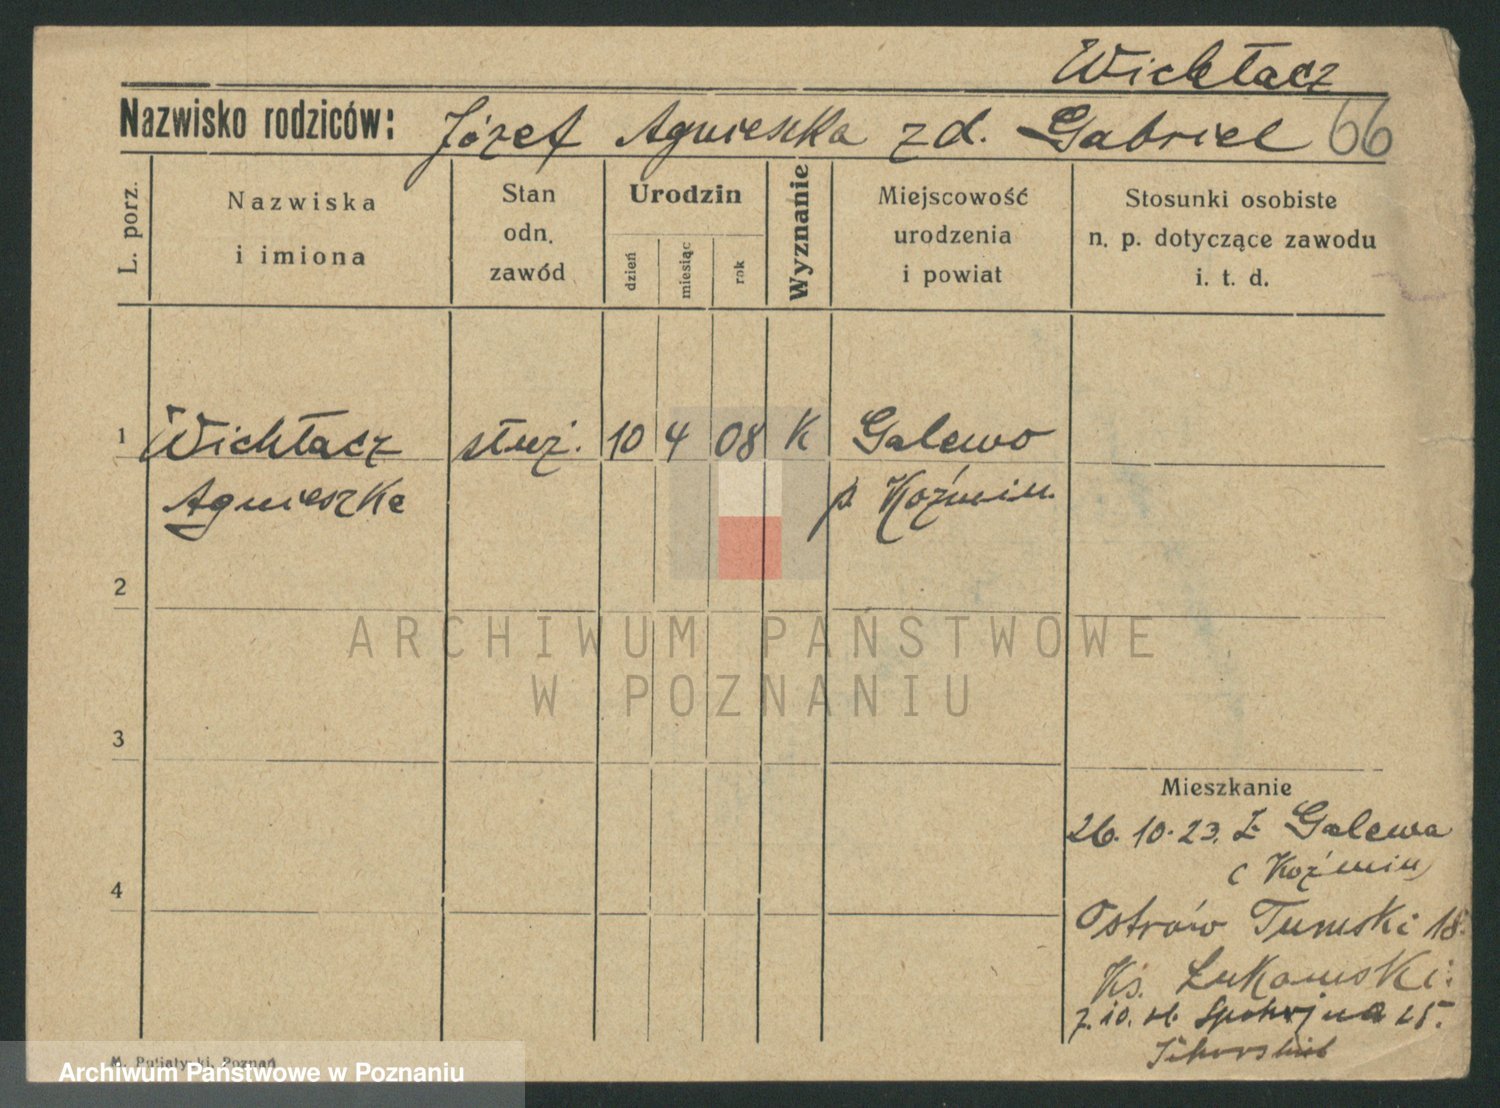 Wichłacz
Nazwisko rodziców: Józef Agnieszka zd. Gabriel 66
L. porz.
Nazwiska
i imiona
Stan
odn.
zawód
Urodzin
dzień
miesiąc
rok
Wyznanie
Miejscowość
urodzenia
i powiat
Stosunki osobiste
n. p. dotyczące zawodu
i. t. d.
1 Wichłacz służ. 10 4 08 K Galewo
Agnieszka p. Koźmin
2
ARCHIWUM PAŃSTWOWE
W POZNANIU
3
Mieszkanie
26.10.23. Z Galewa
(Koźmin)
4
Ostrów Tumski 18.
Ks. Łukomski
7.10. Spokojna 25.
M. Putiatycki, Poznań
Archiwum Państwowe w Poznaniu